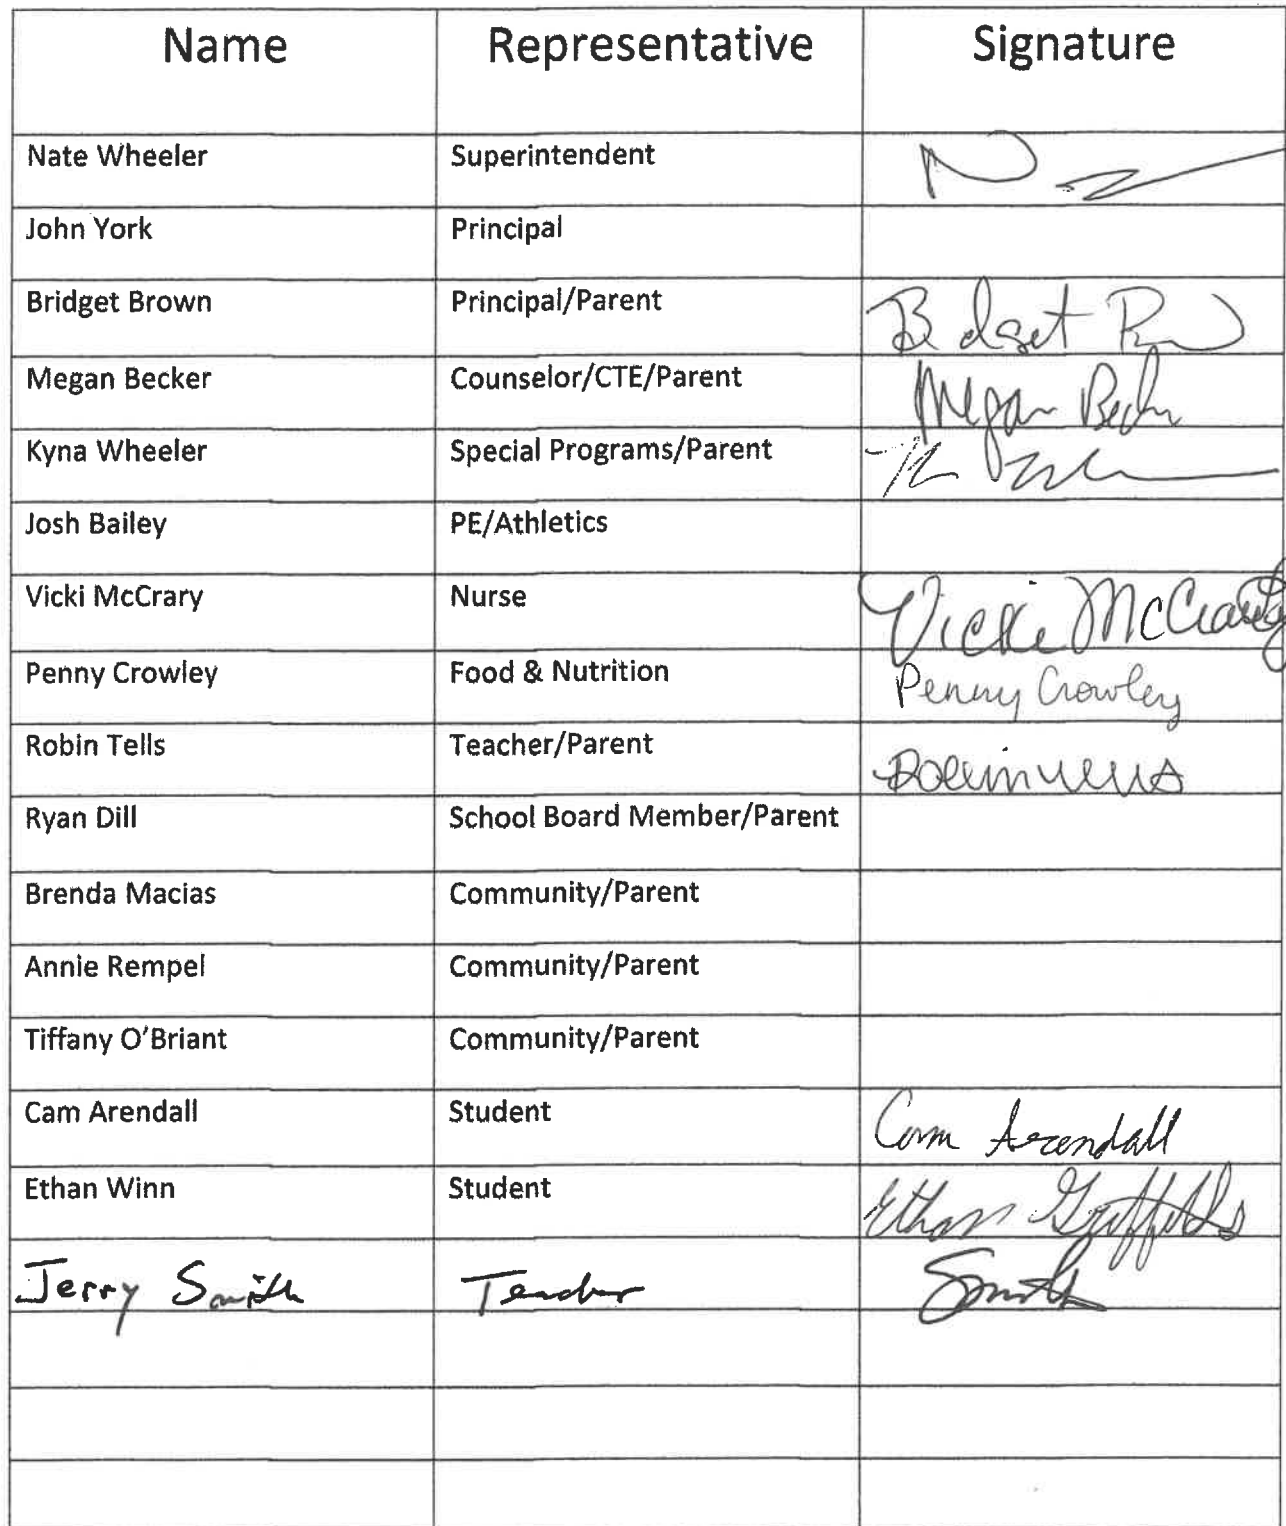 Name Representative Signature
Nate Wheeler Superintendent
John York Principal
Bridget Brown Principal/Parent Bridget
Megan Becker Counselor/CTE/Parent Megan Becker
Kyna Wheeler Special Programs/Parent
Josh Bailey PE/Athletics
Vicki McCrary Nurse Vicki McCrary
Penny Crowley Food & Nutrition Penny Crowley
Robin Tells Teacher/Parent
Ryan Dill School Board Member/Parent
Brenda Macias Community/Parent
Annie Rempel Community/Parent
Tiffany O'Briant Community/Parent
Cam Arendall Student Cam Arendall
Ethan Winn Student Ethan Griffiths
Jerry Smith Teacher Smith